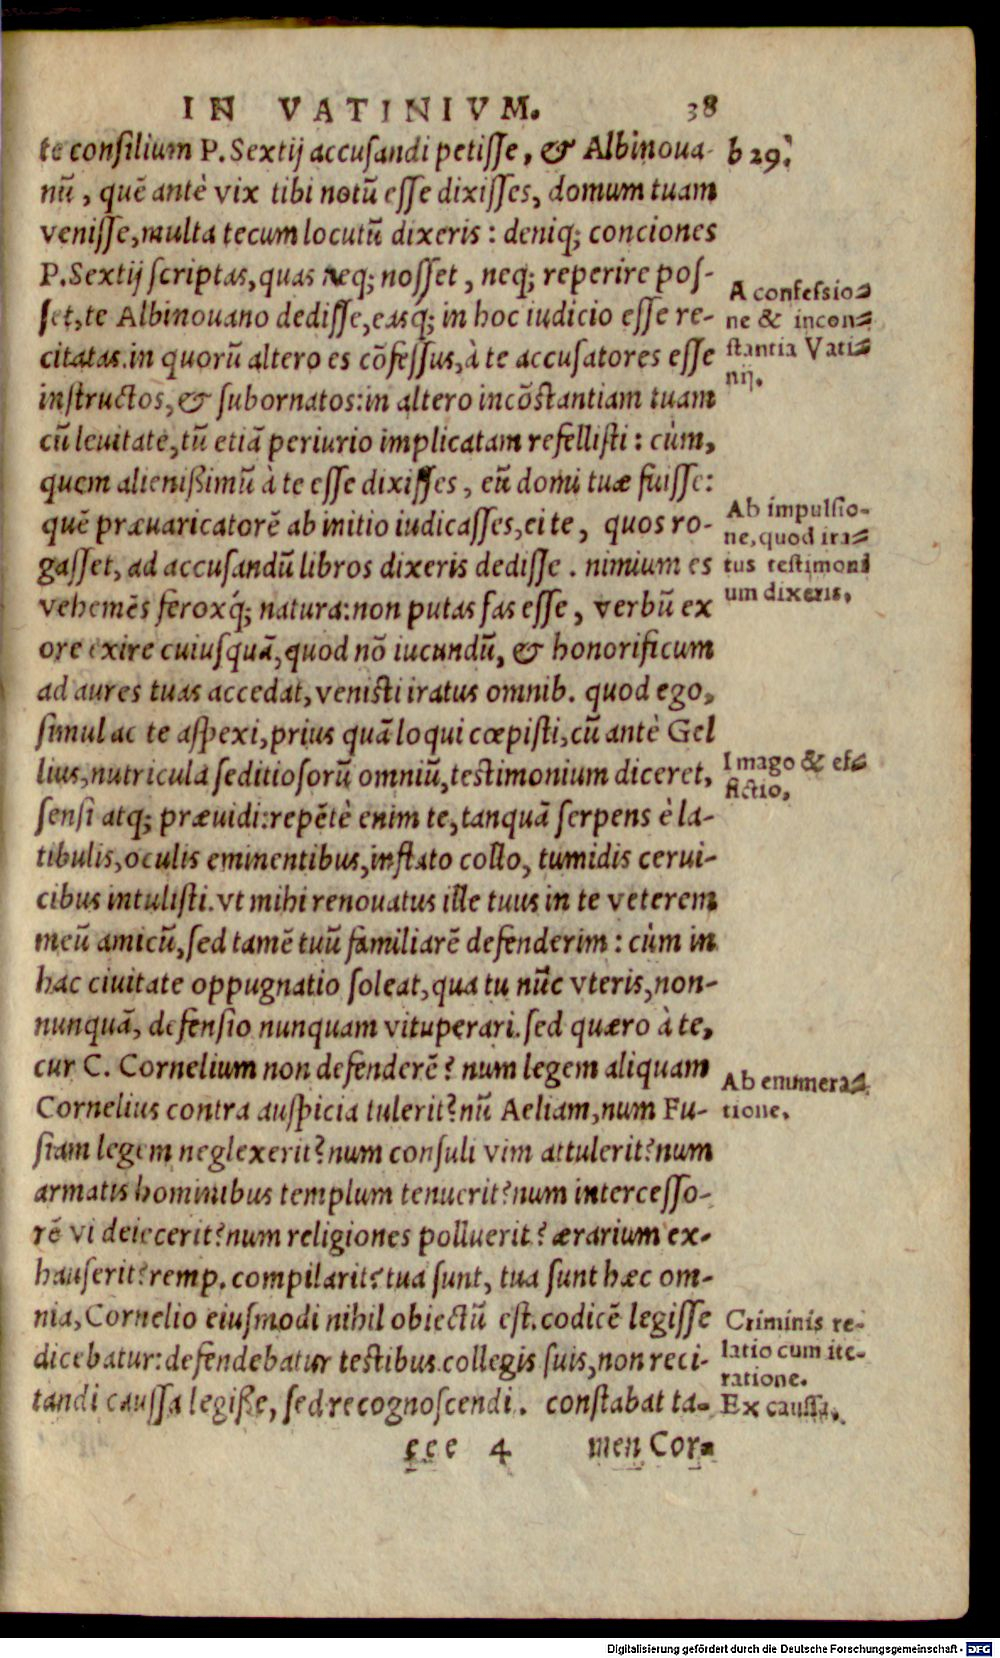 IN VATINIVM. 38
te consilium P. Sextij accusandi petisse, & Albinoua-
nū, quē antè vix tibi notū esse dixisses, domum tuam
venisse, multa tecum locutū dixeris: deniq; conciones
P. Sextij scriptas, quas neq; nosset, neq; reperire pos-
set, te Albinouano dedisse, easq; in hoc iudicio esse re-
citatas. in quorū altero es cōfessus, à te accusatores esse
instructos, & subornatos: in altero incōstantiam tuam
cū leuitate, tū etiā periurio implicatam refellisti: cùm,
quem alienißimū à te esse dixisses, eū domi tuæ fuisse:
quē præuaricatorē ab initio iudicasses, ei te, quos ro-
gasset, ad accusandū libros dixeris dedisse. nimium es
vehemēs feroxq́; natura: non putas fas esse, verbū ex
ore exire cuiusquā, quod nō iucundū, & honorificum
ad aures tuas accedat, venisti iratus omnib. quod ego,
simul ac te aspexi, prius quā loqui cœpisti, cū antè Gel
lius, nutricula seditiosorū omniū, testimonium diceret,
sensi atq; præuidi: repētè enim te, tanquā serpens è la-
tibulis, oculis eminentibus, inflato collo, tumidis cerui-
cibus intulisti. vt mihi renouatus ille tuus in te veterem
meū amicū, sed tamē tuū familiarē defenderim: cùm in
hac ciuitate oppugnatio soleat, qua tu nūc vteris, non-
nunquā, defensio nunquam vituperari. sed quæro à te,
cur C. Cornelium non defenderē? num legem aliquam
Cornelius contra auspicia tulerit? nū Aeliam, num Fu-
siam legem neglexerit? num consuli vim attulerit? num
armatis hominibus templum tenuerit? num intercesso-
rē vi deiecerit? num religiones polluerit? ærarium ex-
hauserit? remp. compilarit? tua sunt, tua sunt hæc om-
nia, Cornelio eiusmodi nihil obiectū est. codicē legisse
dicebatur: defendebatur testibus collegis suis, non reci-
tandi caussa legiße, sed recognoscendi. constabat ta-
eee 4 men Cor-
b 29.
A confessio-
ne & incon-
stantia Vati-
nij.
Ab impulsio-
ne, quod ira-
tus testimoni
um dixeris.
Imago & ef-
fictio.
Ab enumera-
tione.
Criminis re-
latio cum ite-
ratione.
Ex caussa.
Digitalisierung gefördert durch die Deutsche Forschungsgemeinschaft - DFG